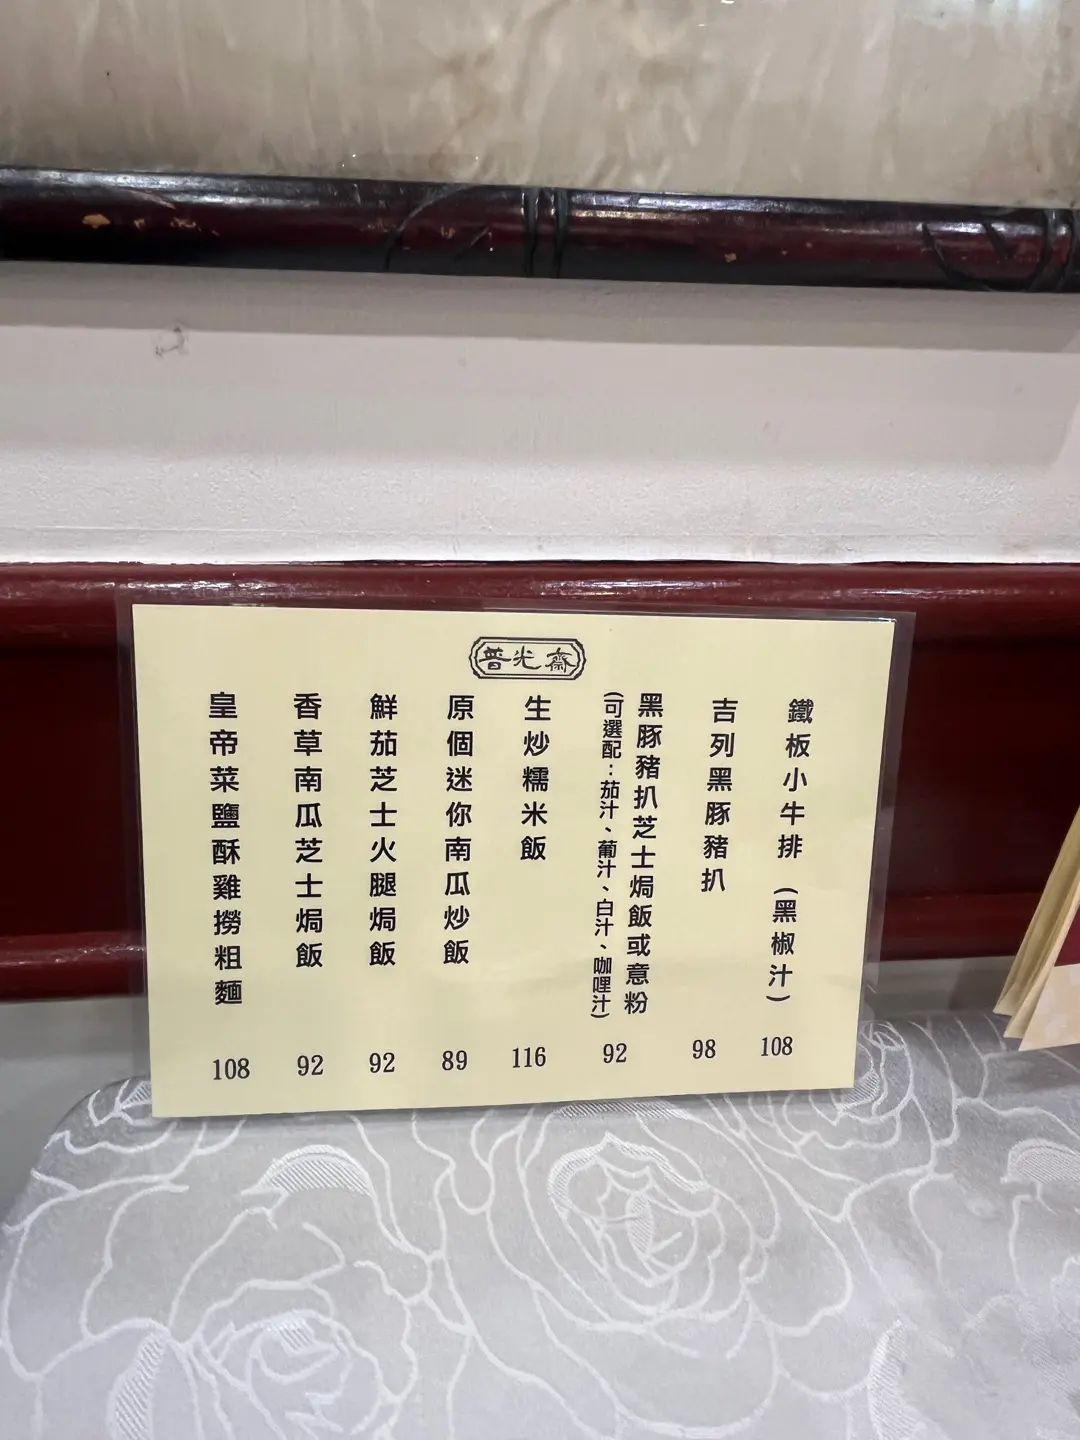 普光齋
鐵板小牛排（黑椒汁） 108
吉列黑豚豬扒 98
黑豚豬扒芝士焗飯或意粉 92
(可選配：茄汁、葡汁、白汁、咖哩汁)
生炒糯米飯 116
原個迷你南瓜炒飯 89
鮮茄芝士火腿焗飯 92
香草南瓜芝士焗飯 92
皇帝菜鹽酥雞撈粗麵 108